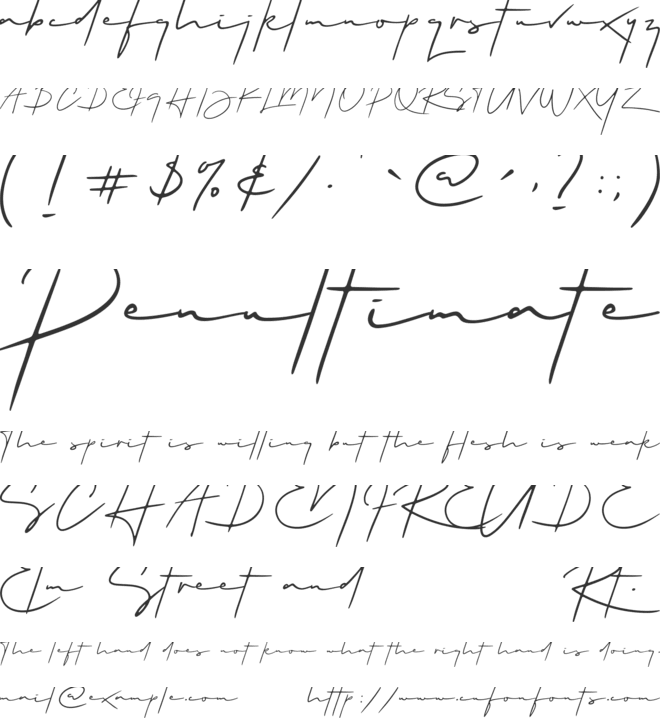 abcdefghijklmnopqrstuvwxyz
ABCDEFGHIJKLMNOPQRSTUVWXYZ
( ! # $ % & / . ' ` @ ´ , . ? : ; )
Penultimate
The spirit is willing but the flesh is weak
SCHADENFREUDE
Elm Street and Rt.
The left hand does not know what the right hand is doing.
mail@example.com http://www.cufonfonts.com